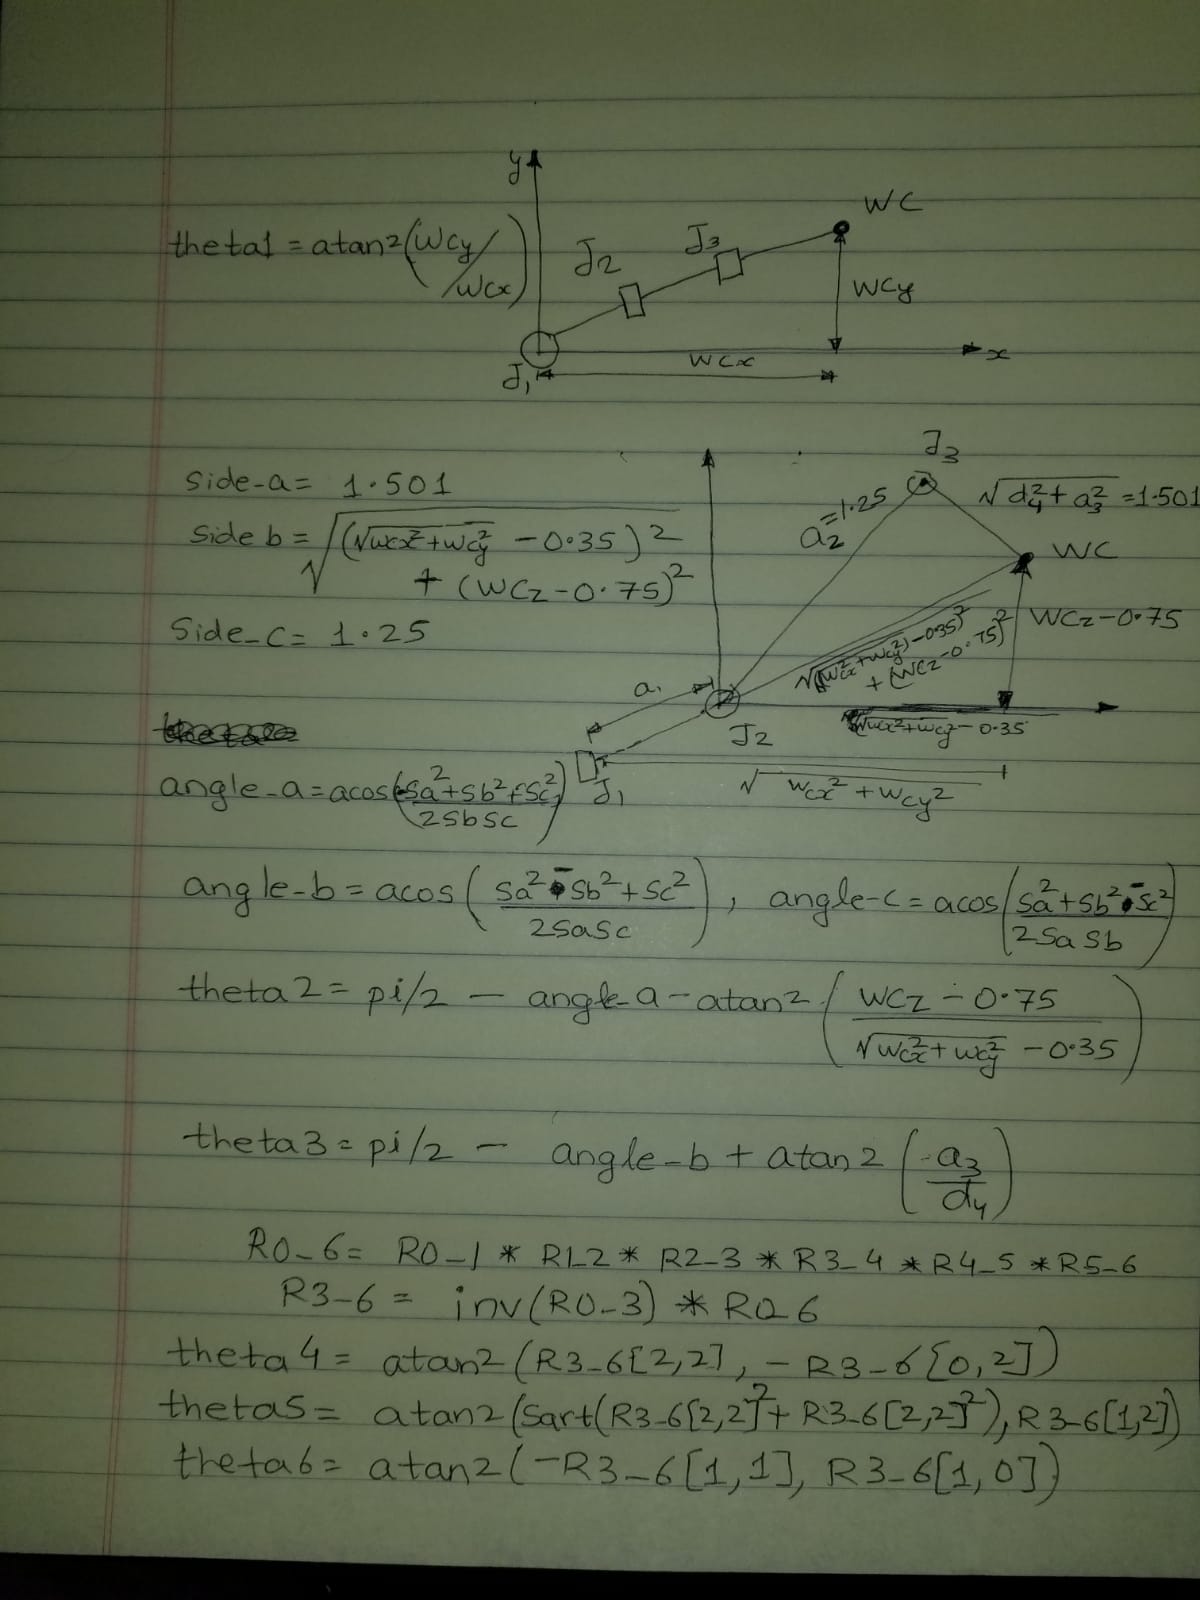 y
WC
theta1 = atan2(WCy/WCx)
J2
J3
WCy
WCx
x
J1
J3
side-a = 1.501
a2 = 1.25
√d4²+a3² = 1.501
side b = √(√wcx²+wcy² - 0.35)²
+ (WCz-0.75)²
WC
Side_c = 1.25
WCz-0.75
√(√wcx²+wcy²)-0.35)²
+ (WCz-0.75)²
a1
J2
√wcx²+wcy² - 0.35
J1
√wcx²+wcy²
angle-a = acos(-Sa²+Sb²+Sc²/2SbSc)
angle-b = acos(Sa²-Sb²+Sc²/2SaSc), angle-c = acos(Sa²+Sb²-Sc²/2SaSb)
theta2 = pi/2 - angle-a - atan2(WCz-0.75/√wcx²+wcy² - 0.35)
theta3 = pi/2 - angle-b + atan2(-a3/d4)
R0_6 = R0_1 * R1_2 * R2_3 * R3_4 * R4_5 * R5_6
R3-6 = inv(R0-3) * R0_6
theta4 = atan2(R3_6[2,2], -R3-6[0,2])
theta5 = atan2(Sqrt(R3-6[2,2]²+R3-6[2,2]²), R3-6[1,2])
theta6 = atan2(-R3_6[1,1], R3_6[1,0])